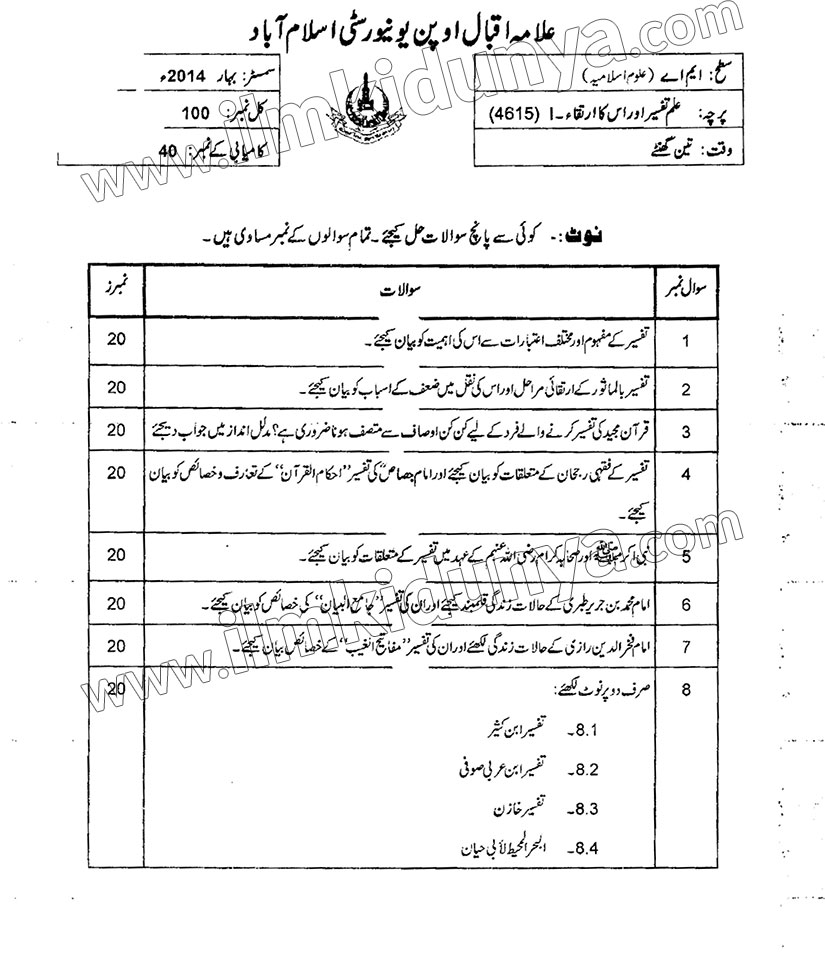 علامہ اقبال اوپن یونیورسٹی اسلام آباد
سطح: ایم اے (علوم اسلامیہ)
سمسٹر: بہار 2014ء
پرچہ: علم تفسیر اور اس کا ارتقاء۔I (4615)
کل نمبر: 100
وقت: تین گھنٹے
کامیابی کے نمبر: 40
نوٹ:- کوئی سے پانچ سوالات حل کیجئے۔ تمام سوالوں کے نمبر مساوی ہیں۔
سوال نمبر سوالات نمبرز
1 تفسیر کے مفہوم اور مختلف اعتبارات سے اس کی اہمیت کو بیان کیجئے۔ 20
2 تفسیر بالماثور کے ارتقائی مراحل اور اس کی نقل میں ضعف کے اسباب کو بیان کیجئے۔ 20
3 قرآن مجید کی تفسیر کرنے والے فرد کے لیے کن کن اوصاف سے متصف ہونا ضروری ہے؟ مدلل انداز میں جواب دیجئے 20
4 تفسیر کے فقہی رجحان کے متعلقات کو بیان کیجئے اور امام جصاصؒ کی تفسیر "احکام القرآن" کے تعارف و خصائص کو بیان 20
کیجئے۔
5 نبی اکرم ﷺ اور صحابہ کرام رضی اللہ عنہم کے عہد میں تفسیر کے متعلقات کو بیان کیجئے۔ 20
6 امام محمد بن جریر طبری کے حالات زندگی قلمبند کیجئے اور ان کی تفسیر "جامع البیان" کی خصائص کو بیان کیجئے۔ 20
7 امام فخر الدین رازی کے حالات زندگی لکھئے اور ان کی تفسیر "مفاتیح الغیب" کے خصائص بیان کیجئے۔ 20
8 صرف دو پر نوٹ لکھئے: 20
8.1۔ تفسیر ابن کثیر
8.2۔ تفسیر ابن عربی صوفی
8.3۔ تفسیر خازن
8.4۔ البحر المحیط لأبی حیان
www.ilmkidunya.com
www.ilmkidunya.com